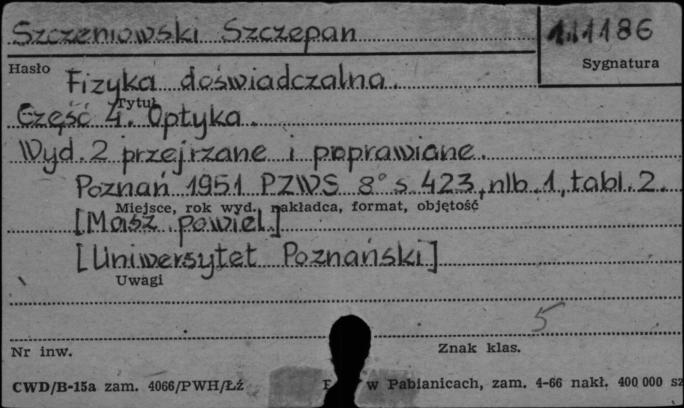 Szczeniowski Szczepan
111186
Hasło
Sygnatura
Fizyka doświadczalna.
Tytuł
Część 4. Optyka.
Wyd. 2 przejrzane i poprawiane.
Poznań 1951 PZWS 8° s. 423, nlb. 1, tabl. 2.
Miejsce, rok wyd., nakładca, format, objętość
[Masz. powiel.]
[Uniwersytet Poznański]
Uwagi
5
Nr inw.
Znak klas.
CWD/B-15a zam. 4066/PWH/Łź
w Pabianicach, zam. 4-66 nakł. 400 000 sz